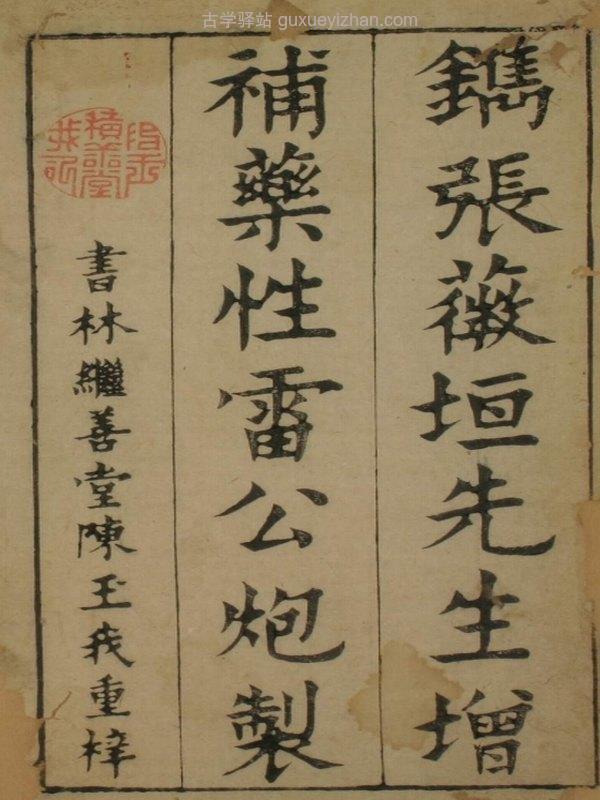 古学驿站 guxueyizhan.com
鐫張薇垣先生增
補藥性雷公炮製
書林繼善堂陳玉我重梓